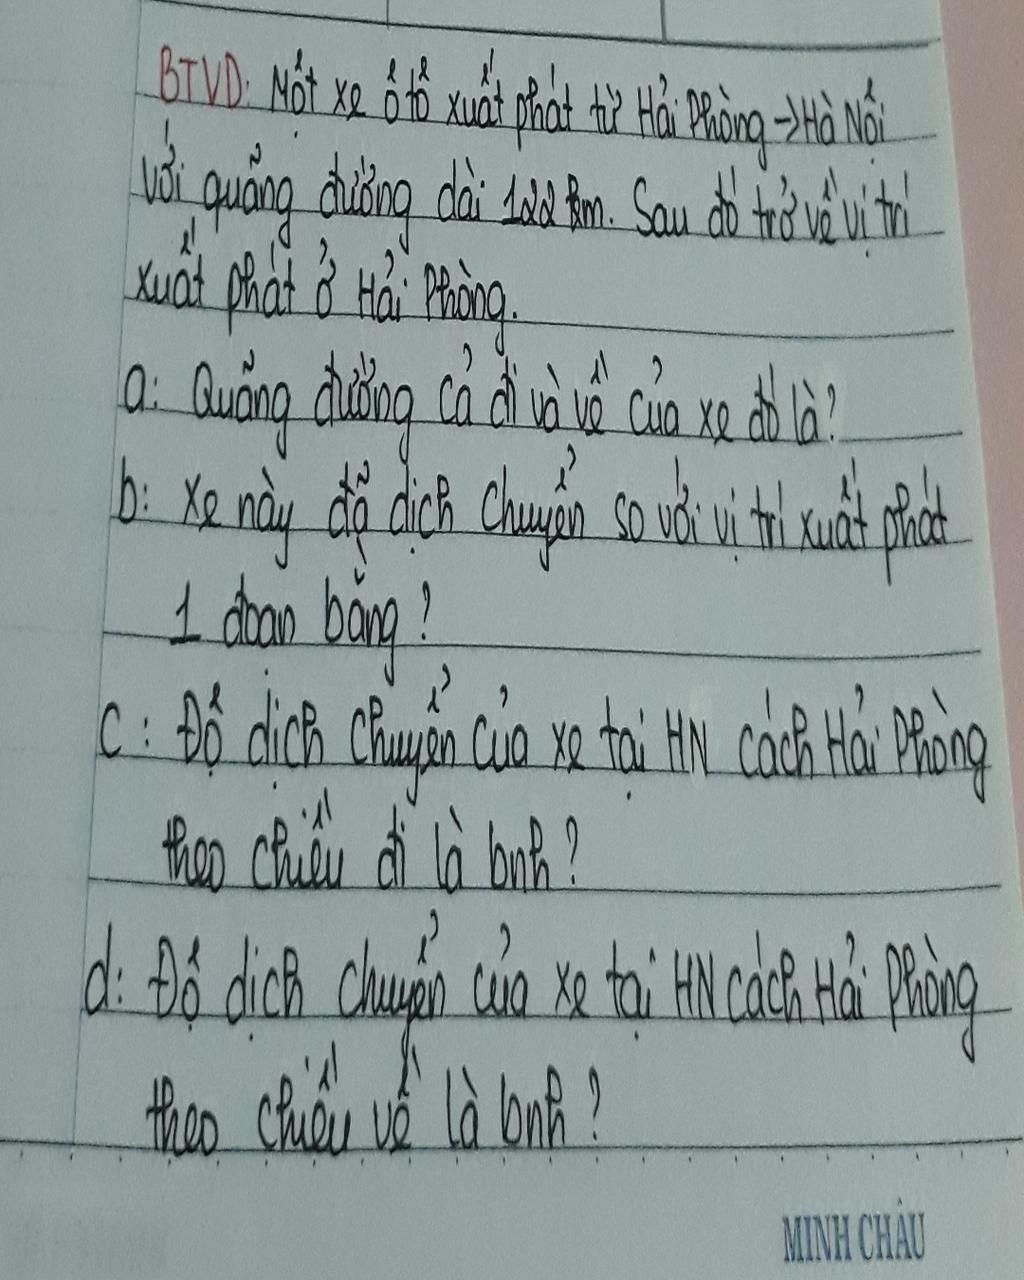 BTVD: Một xe ô tô xuất phát từ Hải Phòng → Hà Nội
với quãng đường dài 122 km. Sau đó trở về vị trí
xuất phát ở Hải Phòng.
a: Quãng đường cả đi và về của xe đó là?
b: Xe này đã dịch chuyển so với vị trí xuất phát
1 đoan bằng?
c: Độ dịch chuyển của xe tại HN cách Hải Phòng
theo chiều đi là bnh?
d: Độ dịch chuyển của xe tại HN cách Hải Phòng
theo chiều về là bnh?
MINH CHÂU